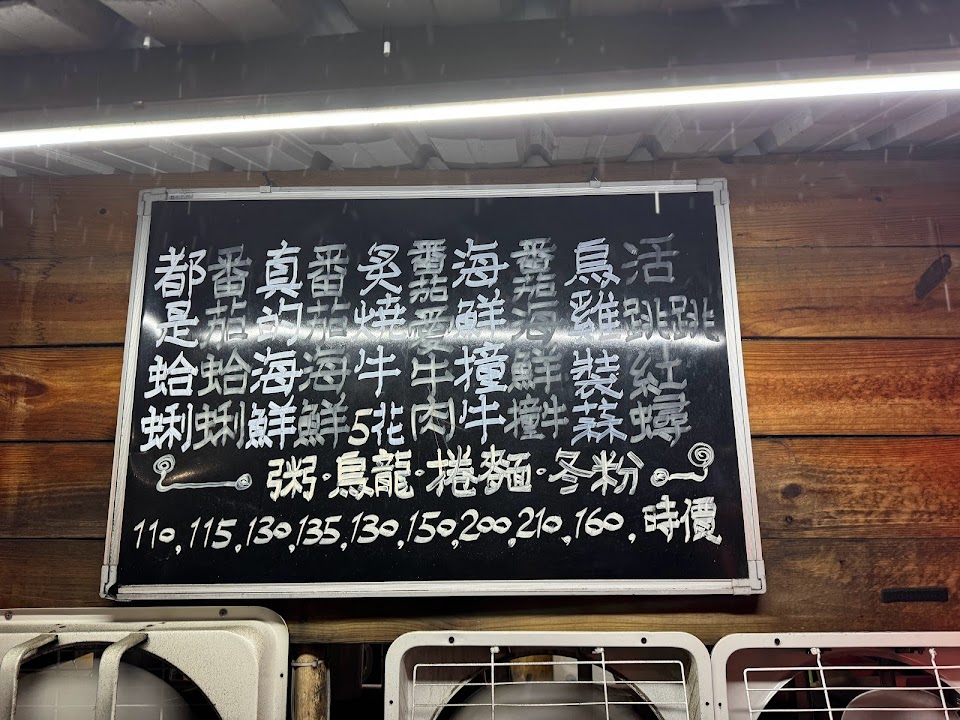 都是蛤蜊
番茄蛤蜊
真的海鮮
番茄海鮮
炙燒牛5花
番茄愛牛肉
海鮮撞牛
番茄海鮮撞牛
烏雞裝蒜
活跳跳紅蟳
粥·烏龍·捲麵·冬粉
110,115,130,135,130,150,200,210,160,時價